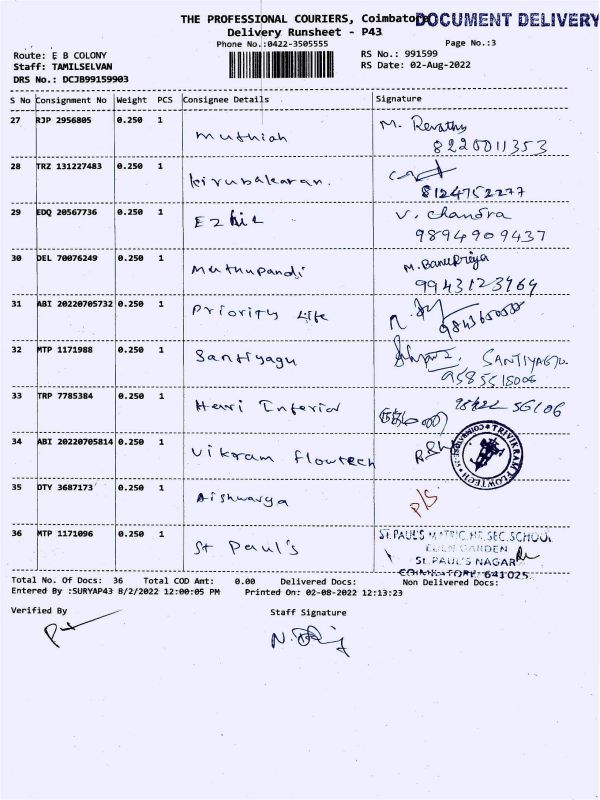 THE PROFESSIONAL COURIERS, Coimbatore
DOCUMENT DELIVERY
Delivery Runsheet - P43
Phone No.:0422-3505555
Page No.:3
Route: E B COLONY
RS No.: 991599
Staff: TAMILSELVAN
RS Date: 02-Aug-2022
DRS No.: DCJB99159903
S No Consignment No Weight PCS Consignee Details Signature
27 RJP 2956805 0.250 1 Muthiah M. Revathy
8220011353
28 TRZ 131227483 0.250 1 Kirubakaran.
8124752277
29 EDQ 20567736 0.250 1 Ezhil V. Chandra
9894909437
30 DEL 70076249 0.250 1 Muthupandi M. Banupriya
9943123964
31 ABI 20220705732 0.250 1 Priority Life
32 MTP 1171988 0.250 1 Santiyagu SANTIYAGU
9585515006
33 TRP 7785384 0.250 1 Henri Interior
34 ABI 20220705814 0.250 1 Vikram Flowtech
TRIVIKRAM FLOWTECH
35 DTY 3687173 0.250 1 Aishwarya P/S
36 MTP 1171096 0.250 1 St Paul's ST.PAUL'S MATRIC.HR.SEC.SCHOOL
EDEN GARDEN
ST.PAUL'S NAGAR
COIMBATORE-641025
Total No. Of Docs: 36 Total COD Amt: 0.00 Delivered Docs: Non Delivered Docs:
Entered By :SURYAP43 8/2/2022 12:00:05 PM Printed On: 02-08-2022 12:13:23
Verified By Staff Signature